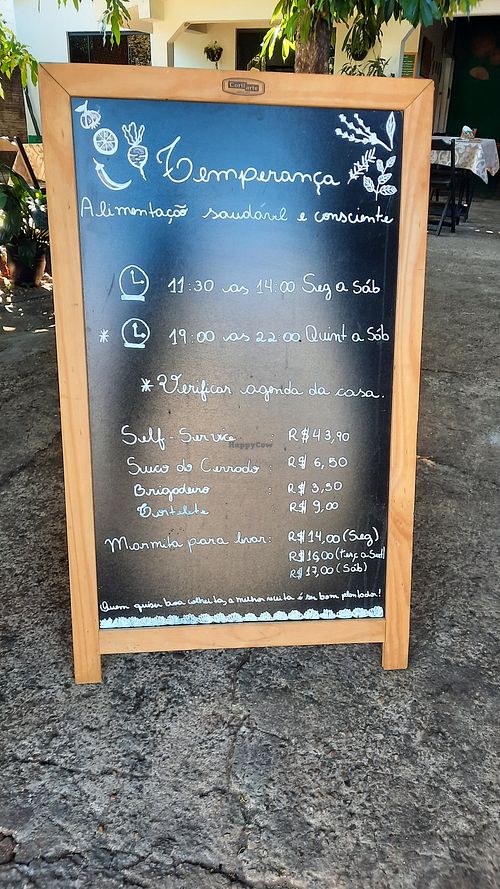 Cortiarte
Temperança
Alimentação saudável e consciente
11:30 as 14:00 Seg a Sáb
* 19:00 as 22:00 Quint a Sáb
*Verificar agenda da casa.
Self-Service : R$ 43,90
HappyCow
Suco do Cerrado : R$ 6,50
Brigadeiro : R$ 3,50
Tortelete R$ 9,00
Marmita para levar: R$ 14,00 (Seg)
R$ 16,00 (Terç a Sext)
R$ 17,00 (Sáb)
Quem quiser boa colheita, a melhor receita é ser bom plantador!